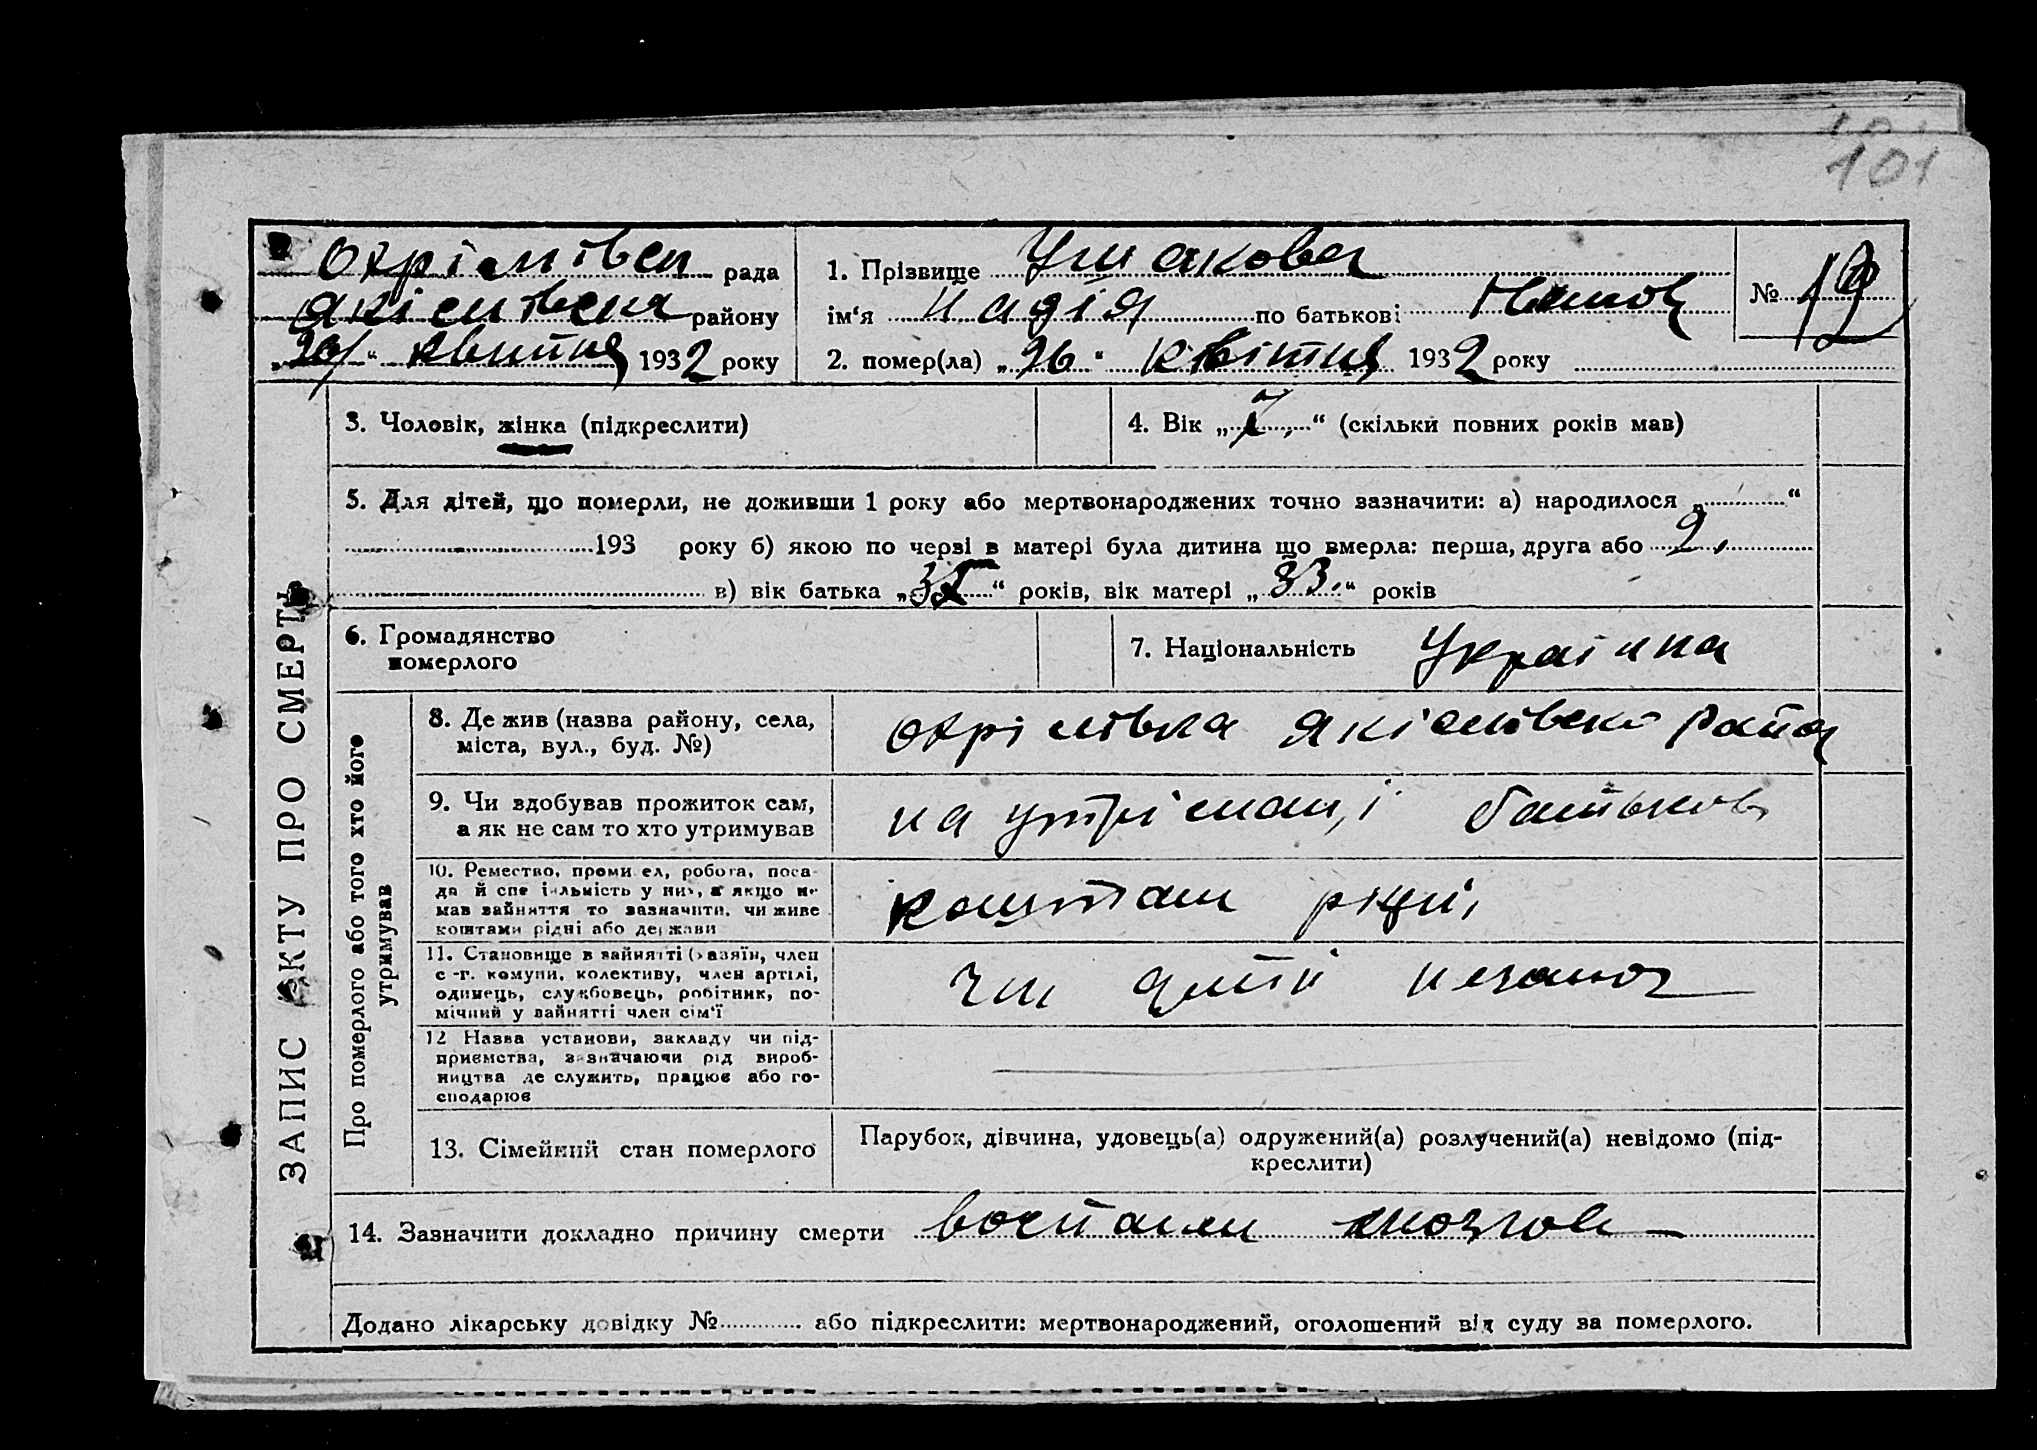 101
Охрімівск рада
Якімівськ району
" " квітня 1932 року
1. Прізвище Ушакова
ім'я Надія по батькові
№ 19
2. помер(ла) „26" квітня 1932 року
ЗАПИС АКТУ ПРО СМЕРТЬ
3. Чоловік, жінка (підкреслити)
4. Вік „7" (скільки повних років мав)
5. Для дітей, що померли, не доживши 1 року або мертвонароджених точно зазначити: а) народилося „ “
193 року б) якою по черзі в матері була дитина що вмерла: перша, друга або 2.
в) вік батька „ “ років, вік матері „33.“ років
6. Громадянство
померлого
7. Національність Українка
Про померлого або того хто його
утримував
8. Де жив (назва району, села,
міста, вул., буд. №)
Охрімівка Якімівсько район
9. Чи здобував прожиток сам,
а як не сам то хто утримував
на утріманні батьков
10. Ремество, промисел, робота, поса-
да й спеціяльність у них, а якщо не
мав зайняття то зазначити, чи живе
коштами рідні або держави
коштам рідні
11. Становище в зайнятті (хазяїн, член
с.-г. комуни, колективу, член артілі,
одинець, службовець, робітник, по-
мічний у зайнятті член сім'ї
12 Назва установи, закладу чи під-
приємства, зазначаючи рід вироб-
ництва де служить, працює або го-
сподарює
13. Сімейний стан померлого
Парубок, дівчина, удовець(а) одружений(а) розлучений(а) невідомо (під-
креслити)
14. Зазначити докладно причину смерти воспалени мозгов
Додано лікарську довідку № або підкреслити: мертвонароджений, оголошений від суду за померлого.